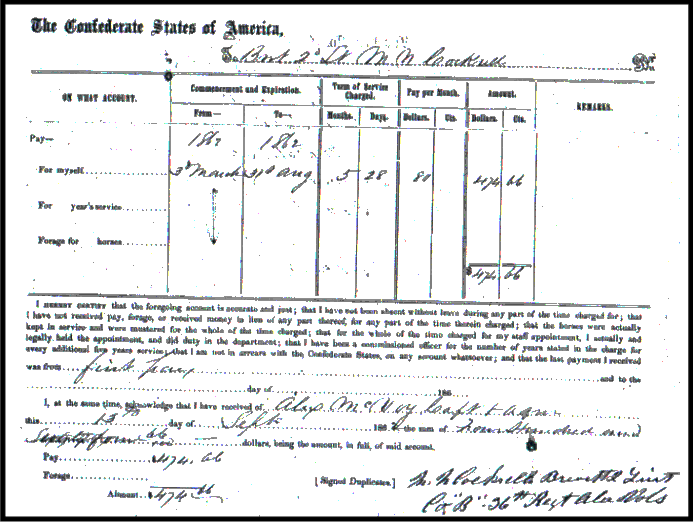 The Confederate States of America,
To Brvt 2d Lt M N Cockrell Dr.
ON WHAT ACCOUNT. Commencement and Expiration. Term of Service Charged. Pay per Month. Amount. REMARKS.
From— To— Months. Days. Dollars. Cts. Dollars. Cts.
Pay— 1862 1862
For myself 3d March 31st Aug 5 28 80 474 66
For year's service
Forage for horses
$474 66
I HEREBY CERTIFY that the foregoing account is accurate and just; that I have not been absent without leave during any part of the time charged for; that
I have not received pay, forage, or received money in lieu of any part thereof, for any part of the time therein charged; that the horses were actually
kept in service and were mustered for the whole of the time charged; that for the whole of the time charged for my staff appointment, I actually and
legally held the appointment, and did duty in the department; that I have been a commissioned officer for the number of years stated in the charge for
every additional five years service; that I am not in arrears with the Confederate States, on any account whatsoever; and that the last payment I received
was from first pay and to the
day of 186
I, at the same time, acknowledge that I have received of Alex McVoy Capt &
this 15th day of Sept 186 the sum of Four Hundred and
Seventy four 66 dollars, being the amount, in full, of said account.
Pay $474.66
Forage
Amount $474 66
[Signed Duplicates.] M N Cockrell Brevt 2d Lieut
Co "B" 36th Regt Ala Vols